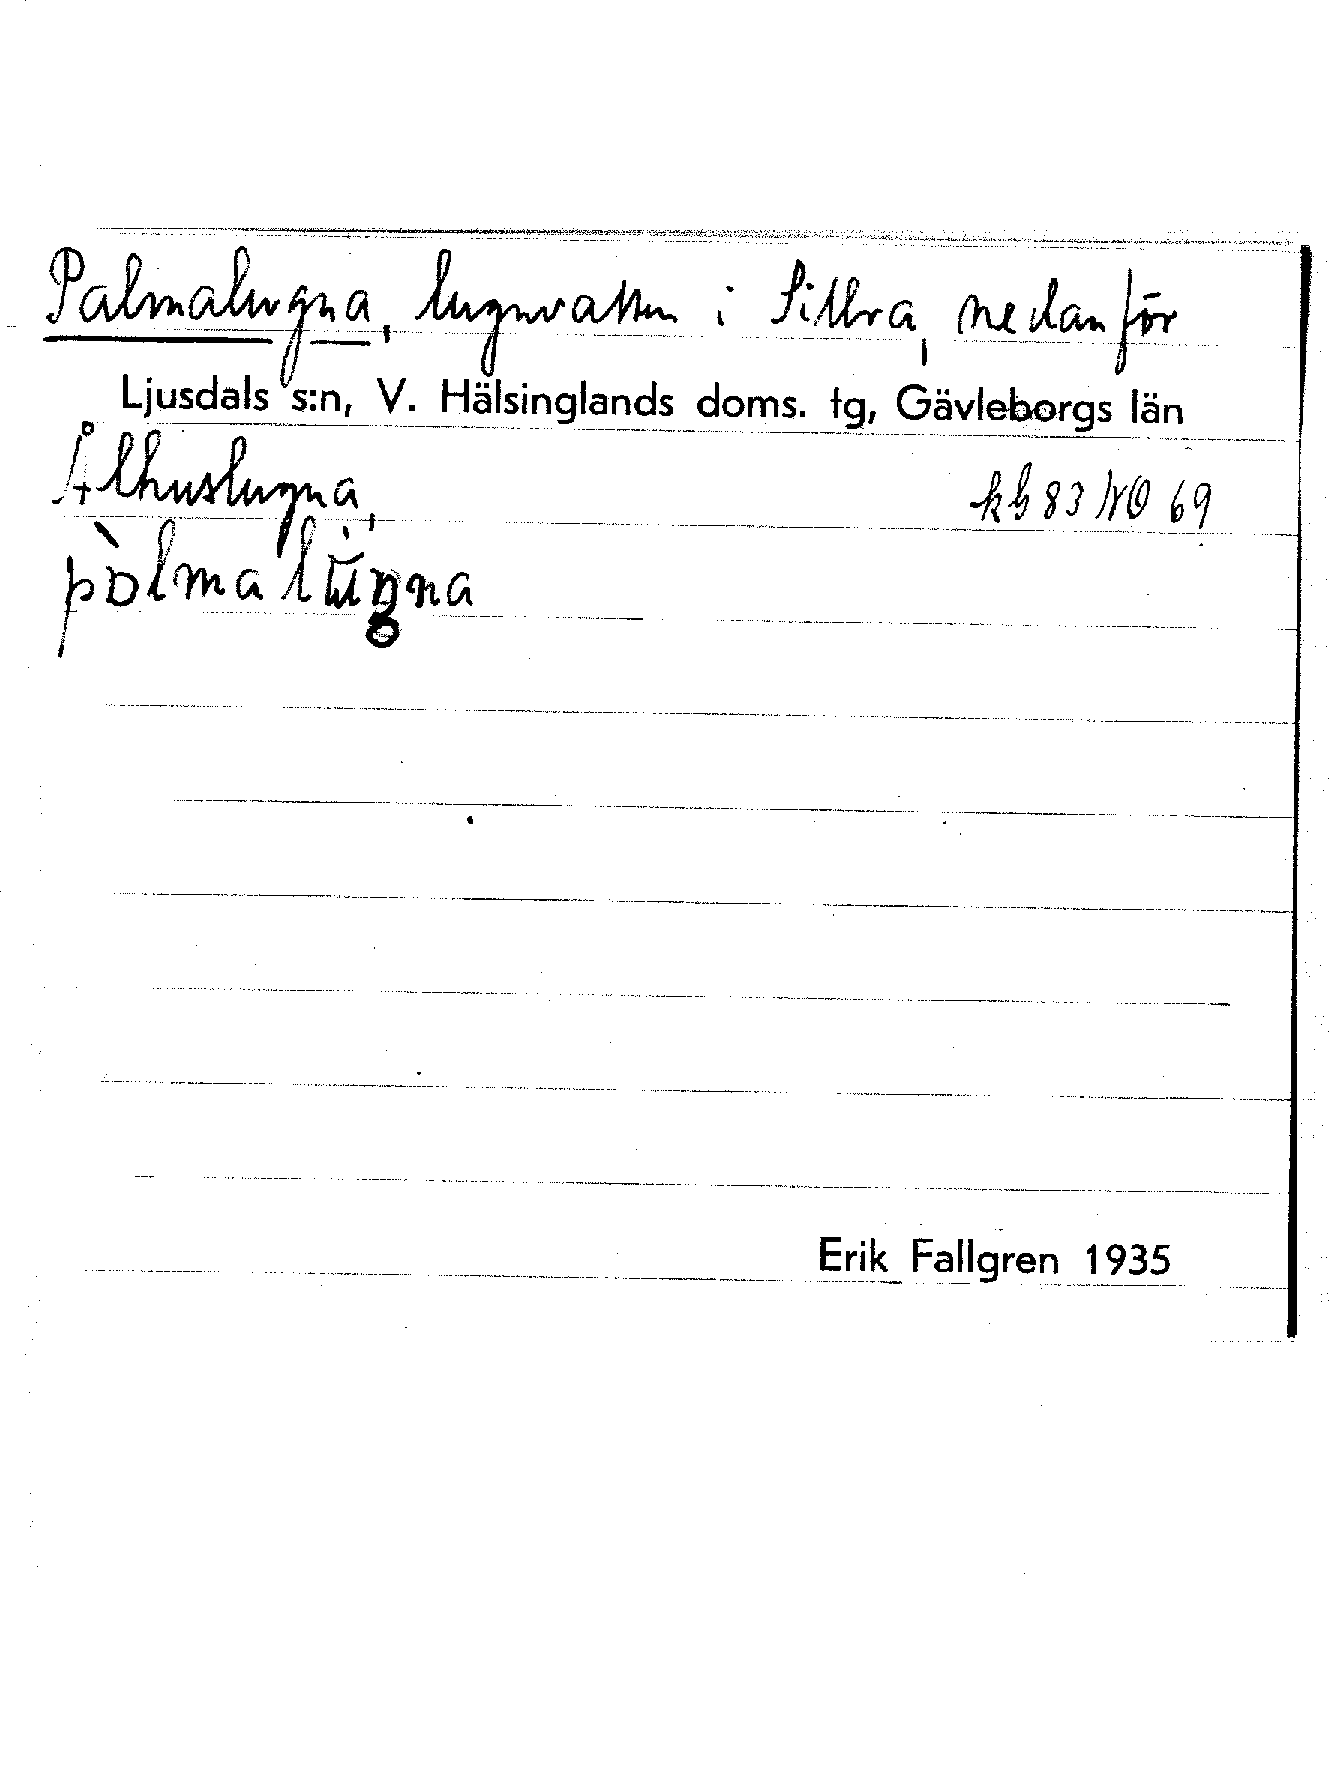 Palmalugna, lugnvatten i Sillra, nedanför
Ljusdals s:n, V. Hälsinglands doms. tg, Gävleborgs län
Ålhuslugna,
kb 83 NO 69
Erik Fallgren 1935